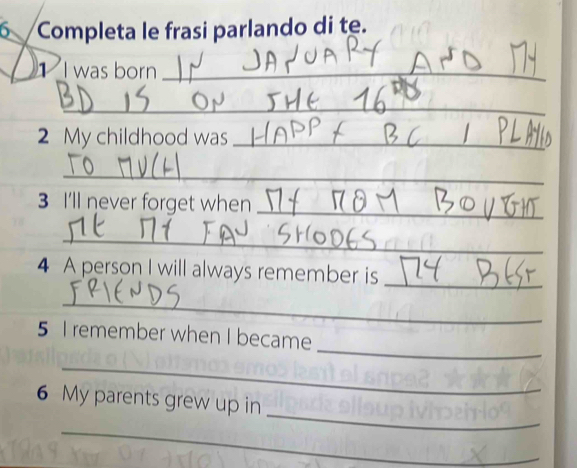 6 Completa le frasi parlando di te.
1 I was born IN JANUARY AND MY
BD IS ON THE 16
2 My childhood was HAPPY BC I PLAYED
TO MUCH
3 I'll never forget when MY MOM BOUGHT
ME MY FAV SHOOES
4 A person I will always remember is MY BEST
FRIENDS
5 I remember when I became
6 My parents grew up in